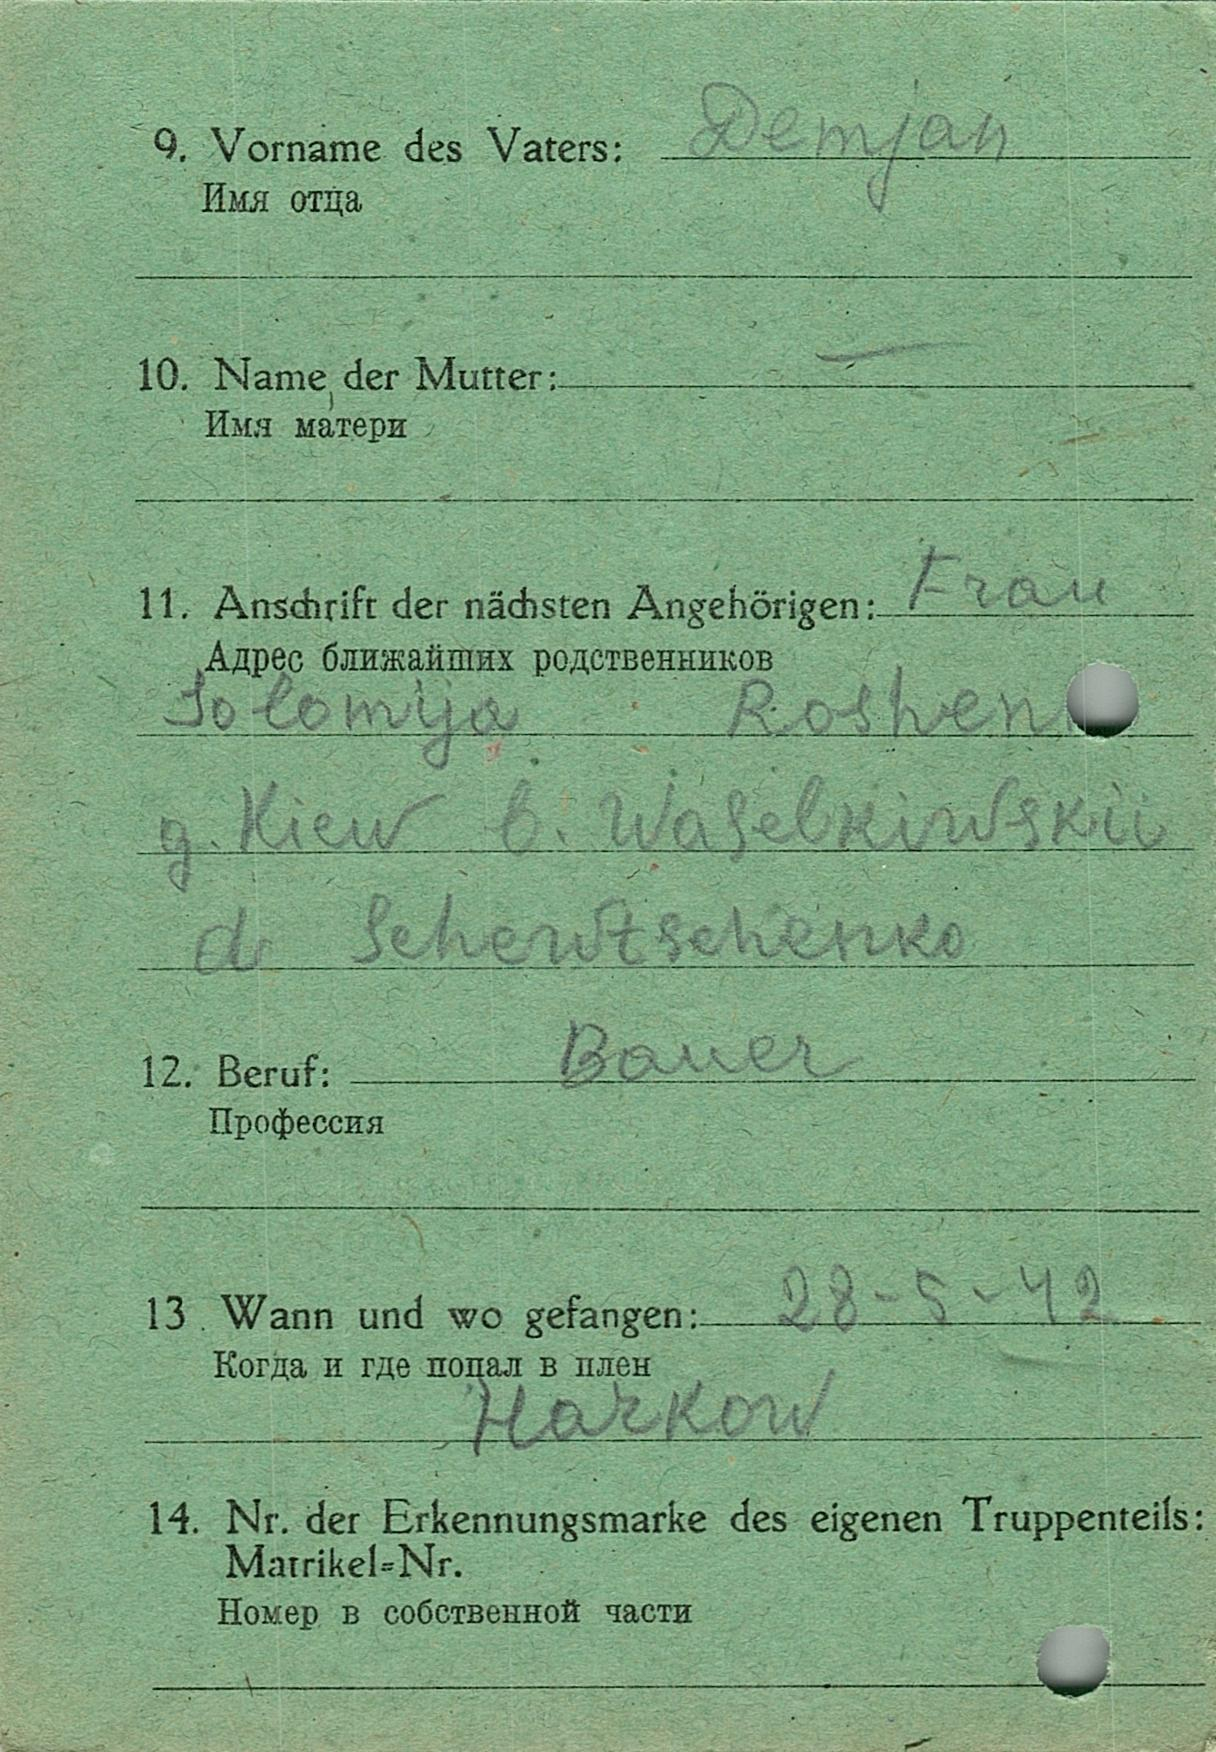 9. Vorname des Vaters: Demjan
Имя отца
10. Name der Mutter: —
Имя матери
11. Anschrift der nächsten Angehörigen: Frau
Адрес ближайших родственников
Solomija
g. Kiew b. Waselkiwskii
d Schewtschenko
12. Beruf: Bauer
Профессия
13. Wann und wo gefangen: 28-5-42
Когда и где попал в плен
Harkow
14. Nr. der Erkennungsmarke des eigenen Truppenteils:
Matrikel=Nr.
Номер в собственной части